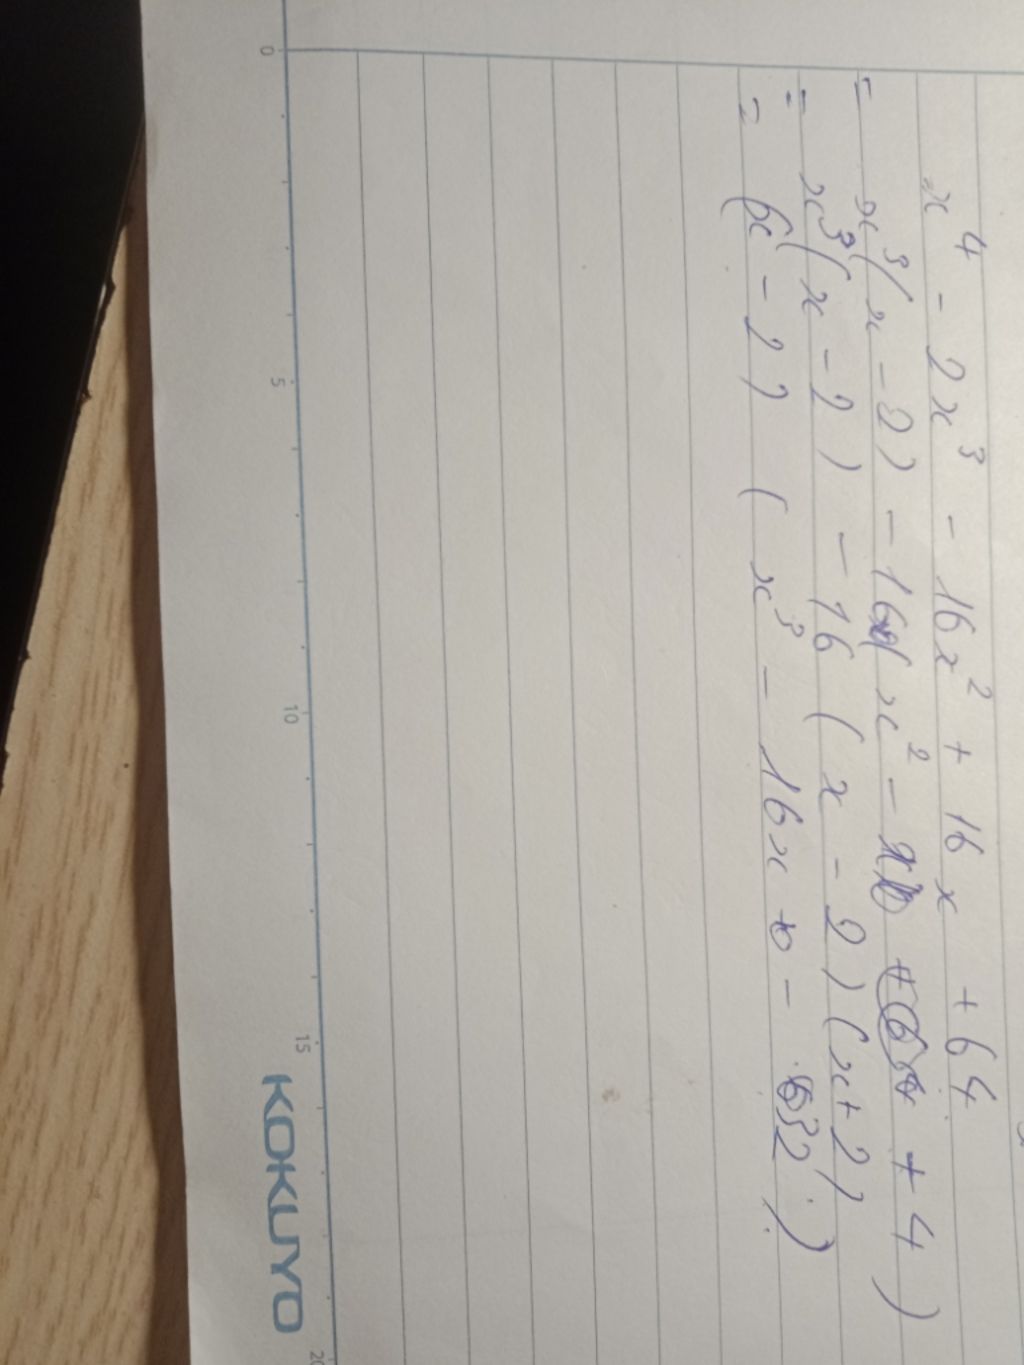 x⁴ - 2x³ - 16x² + 16x + 64
= x³(x - 2) - 16(x² - x + 4)
= x³(x - 2) - 16(x - 2)(x + 2)
= (x - 2)(x³ - 16x - 32)
0 5 10 15 20
KOKUYO